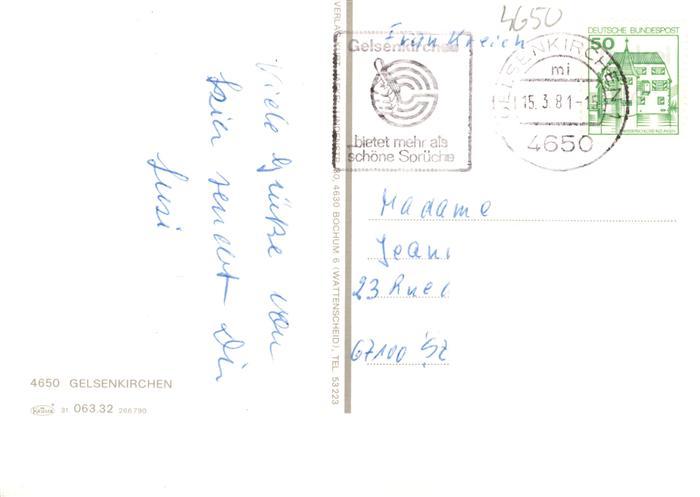 Viele Grüße von
hier sendet Dir
Susi
4650 GELSENKIRCHEN
Krüger 31 063.32 266790
4630 BOCHUM 6 (WATTENSCHEID), TEL. 53223
4650
Gelsenkirchen
bietet mehr als
schöne Sprüche
GELSENKIRCHEN 1
mi
15.3.81-15
4650
DEUTSCHE BUNDESPOST
50
Madame
Jean
23 Rue
67100 St